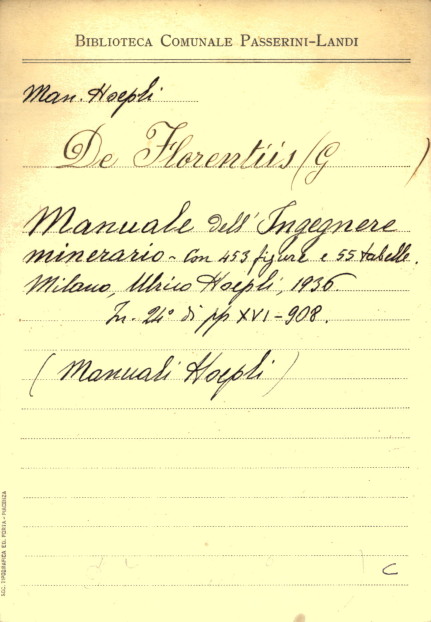 BIBLIOTECA COMUNALE PASSERINI-LANDI
Man. Hoepli
De Florentiis (G )
Manuale dell'Ingegnere
minerario - Con 453 figure e 55 tabelle.
Milano, Ulrico Hoepli, 1936.
In. 24° di pp XVI-908.
(Manuali Hoepli)
C